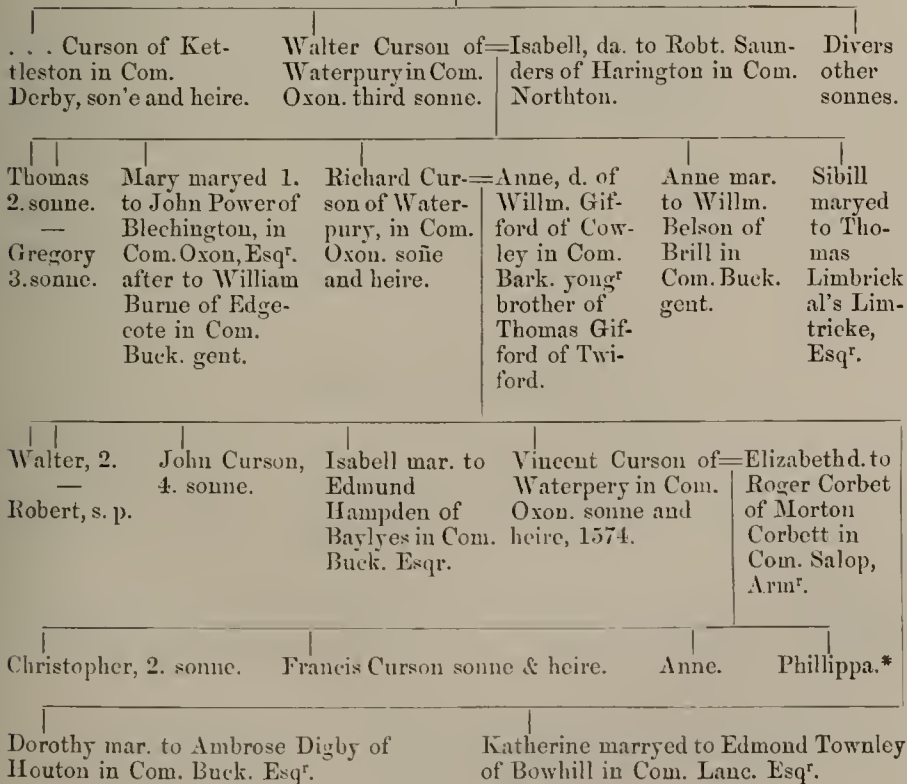 . . . Curson of Ket-
tleston in Com.
Derby, son'e and heire.
Walter Curson of=Isabell, da. to Robt. Saun-
Waterpury in Com.
Oxon. third sonne.
ders of Harington in Com.
Northton.
Divers
other
sonnes.
Thomas
2. sonne.
—
Gregory
3. sonne.
Mary maryed 1.
to John Power of
Blechington, in
Com. Oxon, Esqr.
after to William
Burne of Edge-
cote in Com.
Buck. gent.
Richard Cur-=Anne, d. of
son of Water-
pury, in Com.
Oxon. soñe
and heire.
Willm. Gif-
ford of Cow-
ley in Com.
Bark. yongr
brother of
Thomas Gif-
ford of Twi-
ford.
Anne mar.
to Willm.
Belson of
Brill in
Com. Buck.
gent.
Sibill
maryed
to Tho-
mas
Limbrick
al's Lim-
tricke,
Esqr.
Walter, 2.
—
Robert, s. p.
John Curson,
4. sonne.
Isabell mar. to
Edmund
Hampden of
Baylyes in Com.
Buck. Esqr.
Vincent Curson of=Elizabeth d. to
Waterpery in Com.
Oxon. sonne and
heire, 1574.
Roger Corbet
of Morton
Corbett in
Com. Salop,
Armr.
Christopher, 2. sonne.
Francis Curson sonne & heire.
Anne.
Phillippa.*
Dorothy mar. to Ambrose Digby of
Houton in Com. Buck. Esqr.
Katherine marryed to Edmond Townley
of Bowhill in Com. Lanc. Esqr.